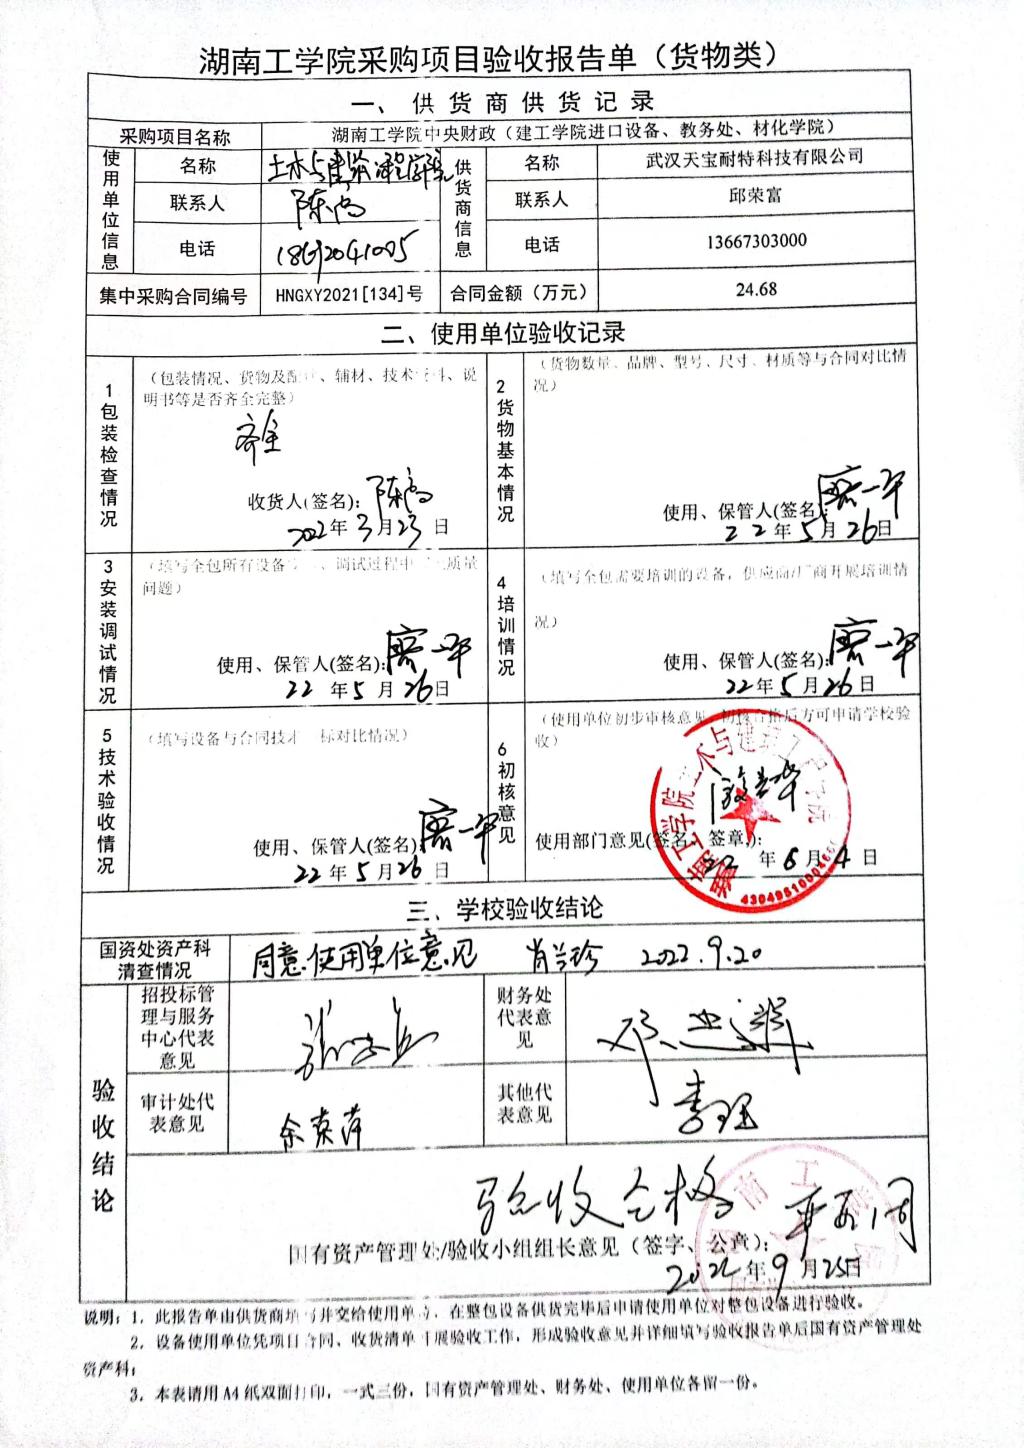 湖南工学院采购项目验收报告单（货物类）
一、供货商供货记录
采购项目名称
湖南工学院中央财政（建工学院进口设备、教务处、材化学院）
使用单位信息
名称
土木与建筑工程学院
供货商信息
名称
武汉天宝耐特科技有限公司
联系人
陈高
联系人
邱荣富
电话
电话
13667303000
集中采购合同编号
HNGXY2021[134]号
合同金额（万元）
24.68
二、使用单位验收记录
1包装检查情况
（包装情况、货物及配、辅材、技术料、说
明书等是否齐全完整）
齐全
收货人(签名): 陈高
2022年3月23日
2货物基本情况
（货物数量、品牌、型号、尺寸、材质等与合同对比情
况）
使用、保管人(签名): 廖一平
22年5月26日
3安装调试情况
（填写全包所有设备、调试过程中质量
问题）
使用、保管人(签名): 廖一平
22年5月26日
4培训情况
（填写全包需要培训的设备，供应商/厂商开展培训情
况）
使用、保管人(签名): 廖一平
22年5月26日
5技术验收情况
（填写设备与合同技术标对比情况）
使用、保管人(签名): 廖一平
22年5月26日
6初核意见
（使用单位初步审核意见，初核合格后方可申请学校验
收）
使用部门意见(签名、签章):
22年6月4日
三、学校验收结论
国资处资产科
清查情况
同意使用单位意见 肖兰珍 2022.9.20
验收结论
招投标管
理与服务
中心代表
意见
财务处
代表意
见
审计处代
表意见
其他代
表意见
验收合格
国有资产管理处/验收小组组长意见（签字、公章）：
2022年9月25日
说明：1、此报告单由供货商填写并交给使用单，在整包设备供货完毕后申请使用单位对整包设备进行验收。
2、设备使用单位凭项目合同、收货清单开展验收工作，形成验收意见并详细填写验收报告单后国有资产管理处
资产科；
3、本表请用A4纸双面打印，一式三份，国有资产管理处、财务处、使用单位各留一份。